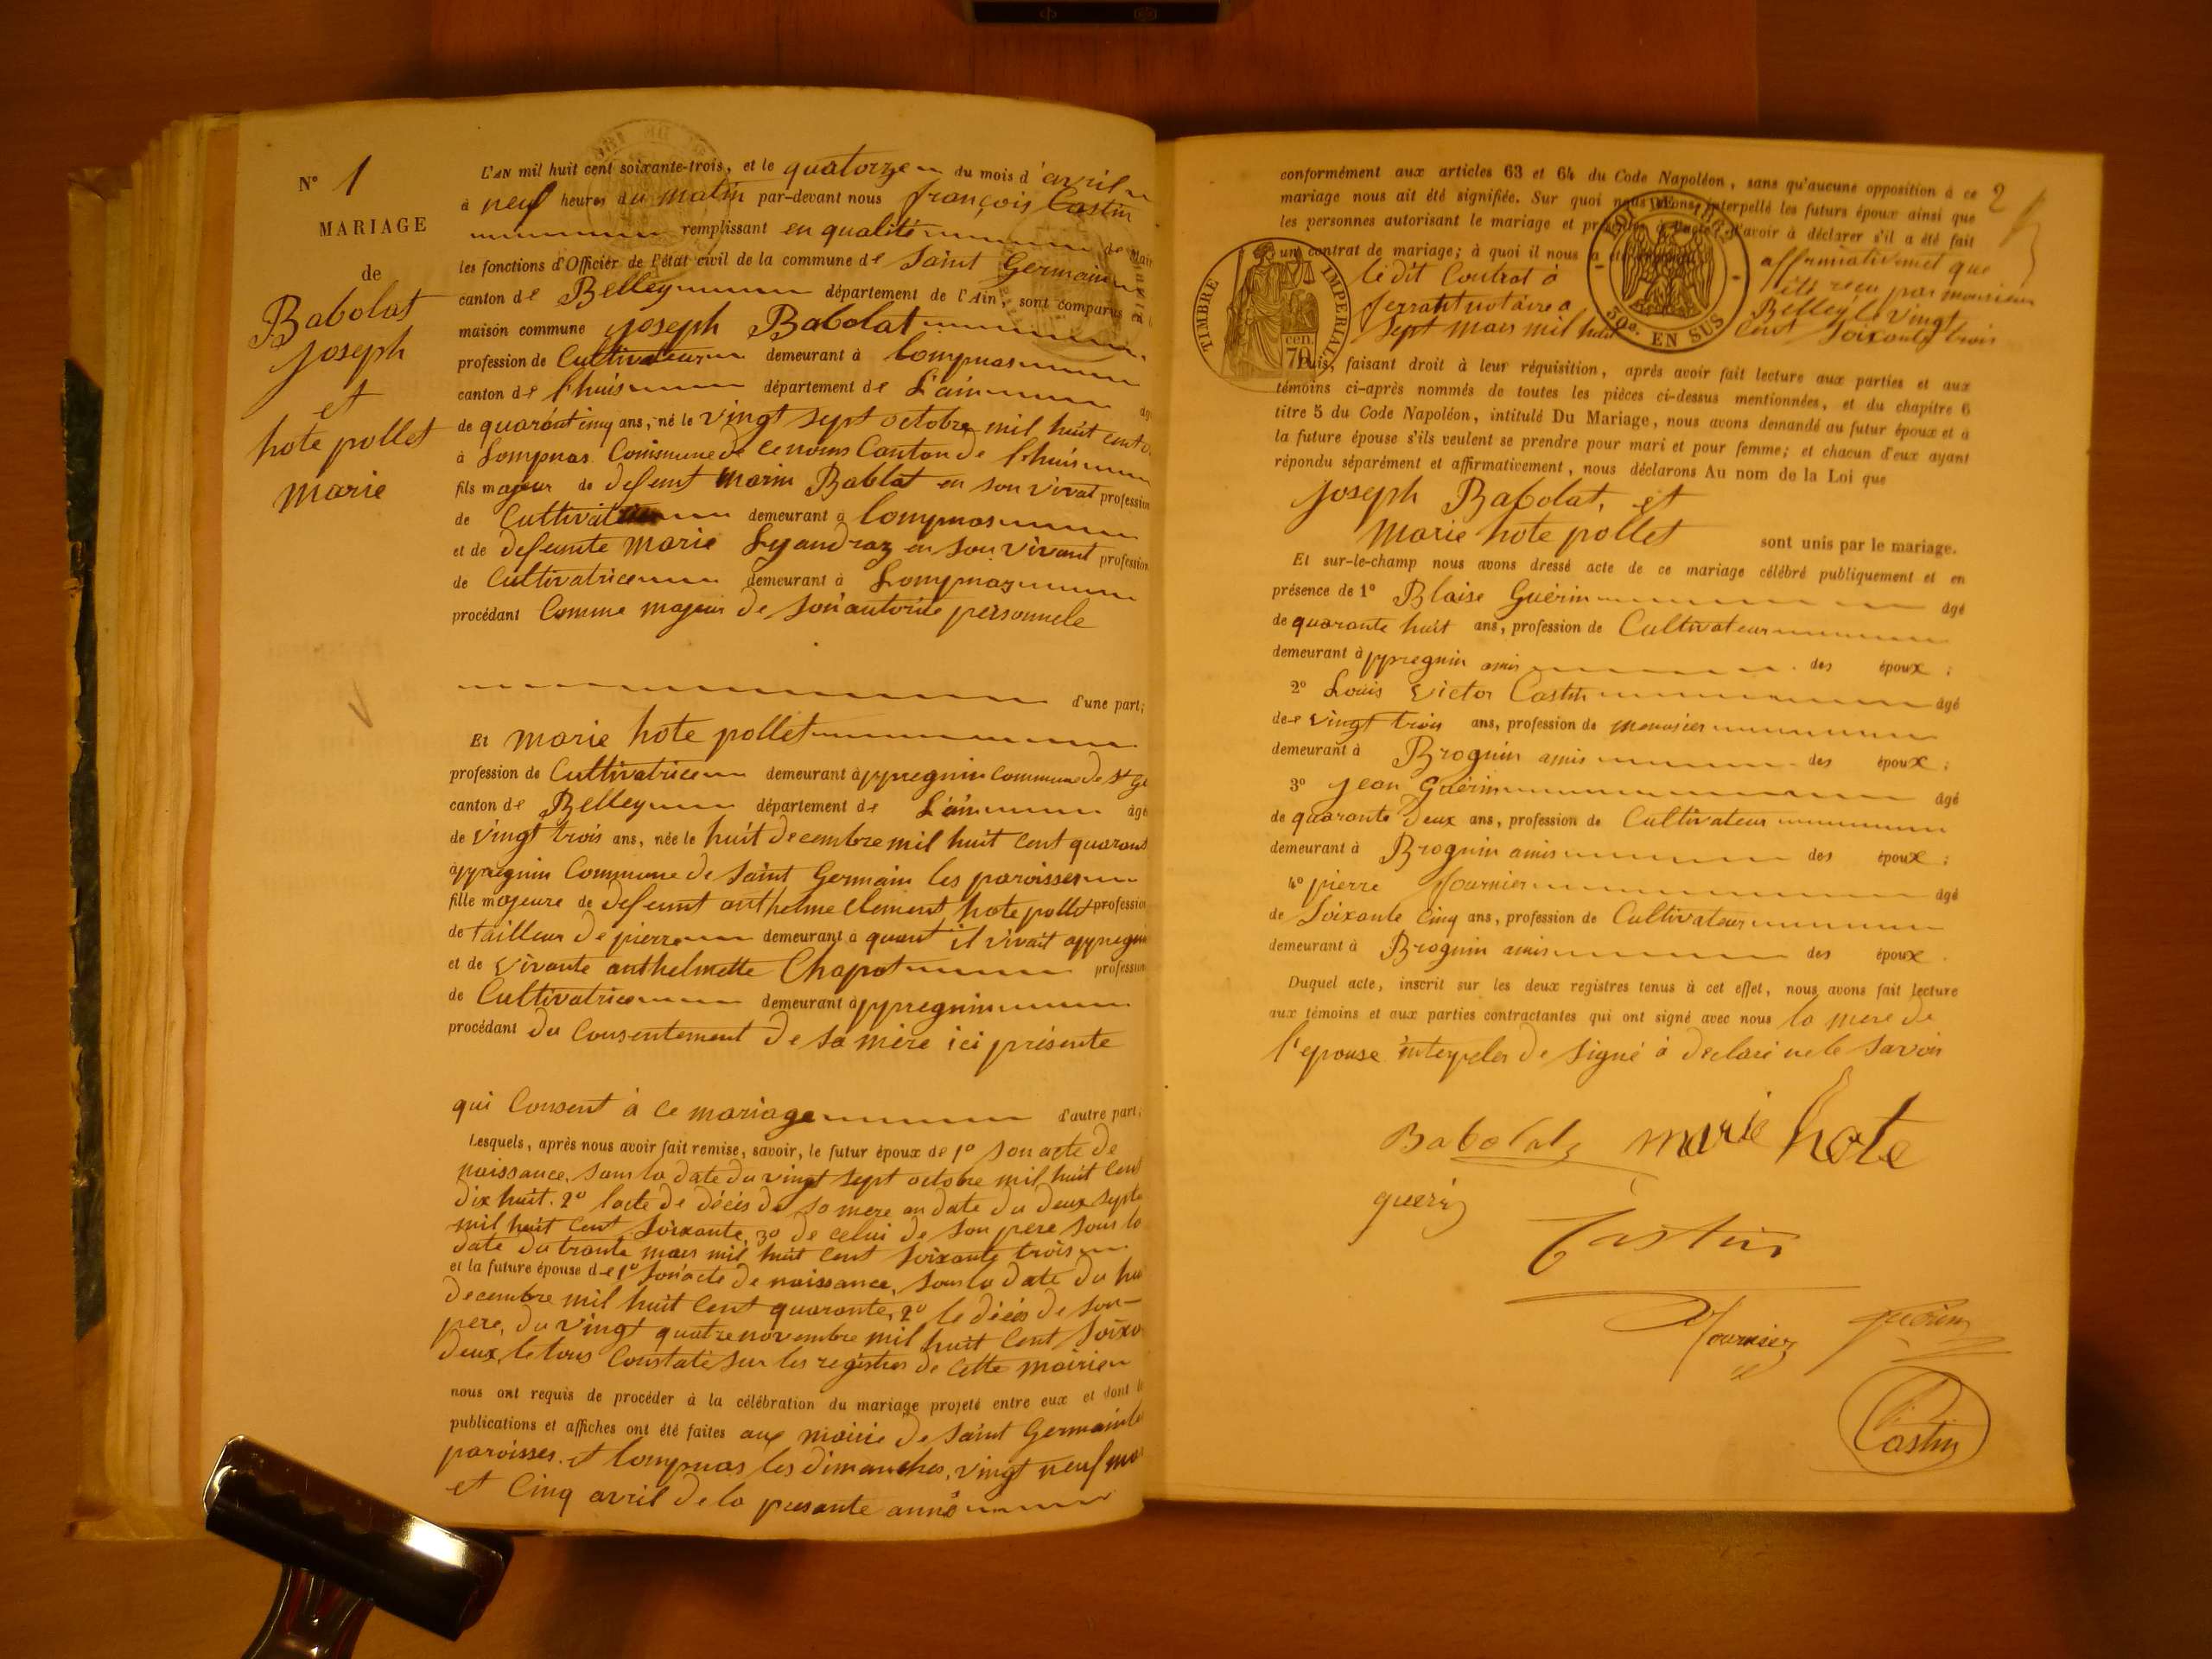 N° 1
MARIAGE
de
Babolat
Joseph
et
hote pollet
marie
L'AN mil huit cent soixante-trois, et le quatorze du mois d'avril
à neuf heures du matin par-devant nous françois Castin
remplissant en qualité de Mair
les fonctions d'Officier de l'état civil de la commune de Saint Germain
canton de Belley département de l'Ain, sont comparus en
maison commune Joseph Babolat
profession de Cultivateur demeurant à Lompnas
canton de l'huis département de L'ain âgé
de quarante cinq ans, né le vingt sept octobre mil huit cent
à Lompnas Commune de ce noms Canton de l'huis
fils majeur de defeunt Marin Bablat en son vivat profession
de demeurant à lompnas
et de defeunte Marie Lyaudraz en son vivant profession
de Cultivatrice demeurant à Lompnas
procédant Comme majeur de son autorite personnele
d'une part;
Et marie hote pollet
profession de Cultivatrice demeurant à ppregnin Commune de St Ge
canton de Belley département de L'ain âgé
de vingt trois ans, née le huit decembre mil huit cent quarant
àppregnin Commune de Saint Germain les paroisses
fille majeure de defeunt anthelme Clement hote pollet profession
de tailleur de pierre demeurant à quant il vivait appregnin
et de vivante anthelmette Chapot profession
de Cultivatrice demeurant àppregnin
procédant du Consentement de sa mère ici présente
qui Consent à ce mariage d'autre part,
Lesquels, après nous avoir fait remise, savoir, le futur époux de 1° son acte de
naissance, sous la date du vingt sept octobre mil huit cent
dix huit. 2° lacte de décès de sa mere en date du deux septe
mil huit cent soixante, 3° de celui de son pere sous la
date du trante mars mil huit cent soixante trois
et la future épouse de 1° son acte de naissance, sous la date du hu
decembre mil huit cent quarante, 2° le décès de son
pere, du vingt quatre novembre mil huit cent soixa
deux, le tous Constaté sur les registres de cette mairie
nous ont requis de procéder à la célébration du mariage projeté entre eux et dont le
publications et affiches ont été faites aux mairie de Saint Germain les
paroisses. et lompnas les dimanches, vingt neuf mar
et Cinq avril de la presante anné
conformément aux articles 63 et 64 du Code Napoléon, sans qu'aucune opposition à ce 2
mariage nous ait été signifiée. Sur quoi nous avons interpellé les futurs époux ainsi que
les personnes autorisant le mariage et présentes à l'acte d'avoir à déclarer s'il a été fait
un contrat de mariage; à quoi il nous a été répondu affirmativemet que
le dit Contrat à été recu par monsieur
ferrant notaire a Belley le vingt
sept mars mil huit cent soixante trois
TIMBRE IMPERIAL
70 cen.
LOI DE 1862
50c. EN SUS
Puis, faisant droit à leur réquisition, après avoir fait lecture aux parties et aux
témoins ci-après nommés de toutes les pièces ci-dessus mentionnées, et du chapitre 6
titre 5 du Code Napoléon, intitulé Du Mariage, nous avons demandé au futur époux et à
la future épouse s'ils veulent se prendre pour mari et pour femme; et chacun d'eux ayant
répondu séparément et affirmativement, nous déclarons Au nom de la Loi que
Joseph Babolat, et
Marie hote pollet sont unis par le mariage.
Et sur-le-champ nous avons dressé acte de ce mariage célébré publiquement et en
présence de 1° Blaise Guérin âgé
de quarante huit ans, profession de Cultivateur
demeurant à ppregnin amis des époux;
2° Louis victor Castin âgé
de vingt trois ans, profession de menusier
demeurant à Brognin amis des époux;
3° Jean Guérin âgé
de quarante deux ans, profession de Cultivateur
demeurant à Brognin amis des époux;
4° pierre fournier âgé
de soixante cinq ans, profession de Cultivateur
demeurant à Brognin amis des époux.
Duquel acte, inscrit sur les deux registres tenus à cet effet, nous avons fait lecture
aux témoins et aux parties contractantes qui ont signé avec nous la mere de
l'epouse interpeler de signé à declaré ne le savoir
Babolat marie hote
guerin
Castin
fournier guérin
Castin